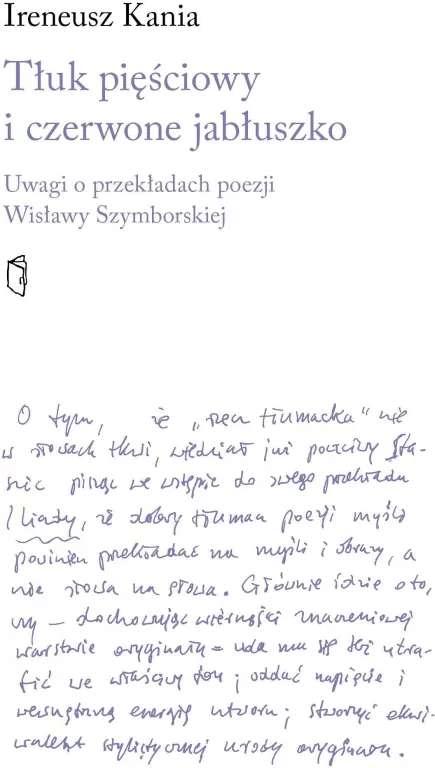 Ireneusz Kania
Tłuk pięściowy
i czerwone jabłuszko
Uwagi o przekładach poezji
Wisławy Szymborskiej
O tym, że „rzecz tłumacka” nie
w słowach tkwi, wiedział już poczciwy Sta-
szic pisząc we wstępie do swego przekładu
Iliady, że dobry tłumacz poezji myślą
powinien przekładać na myśli i obrazy, a
nie słowa na słowa. Głównie idzie o to,
czy – dochowując wierności znaczeniowej
warstwie oryginału – uda mu się też utra-
fić we właściwy ton; oddać napięcie i
wewnętrzną energię utworu; stworzyć ekwi-
walent stylistycznej urody oryginału.